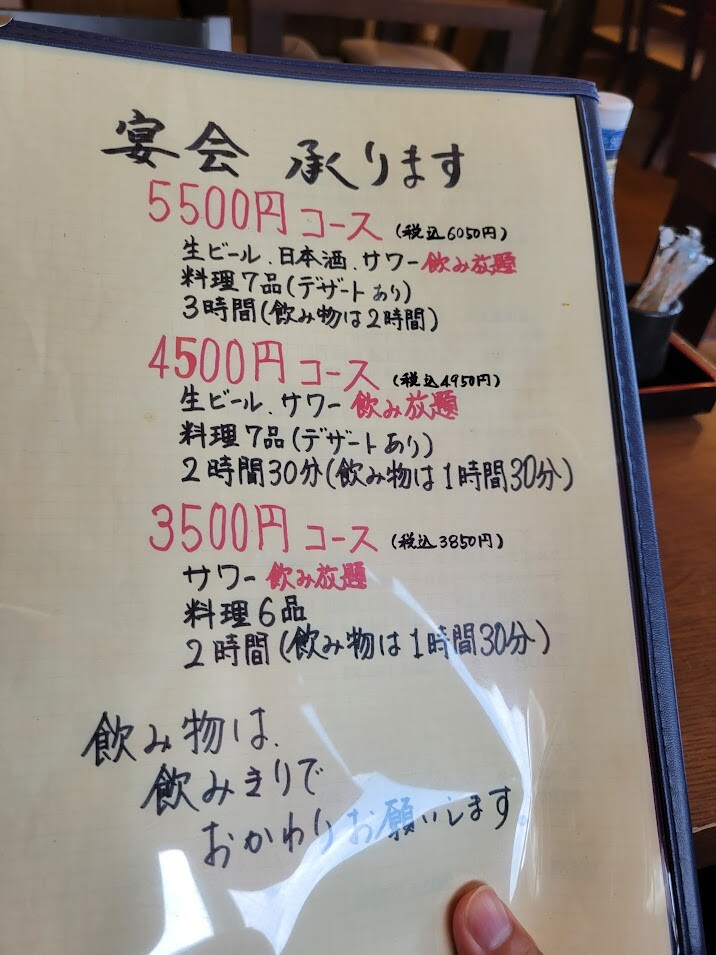 宴会 承ります
5500円コース (税込6050円)
生ビール、日本酒、サワー飲み放題
料理7品(デザートあり)
3時間(飲み物は2時間)
4500円コース (税込4950円)
生ビール、サワー 飲み放題
料理7品(デザートあり)
2時間30分(飲み物は1時間30分)
3500円コース (税込3850円)
サワー飲み放題
料理6品
2時間(飲み物は1時間30分)
飲み物は、
飲みきりで
おかわりお願いします。